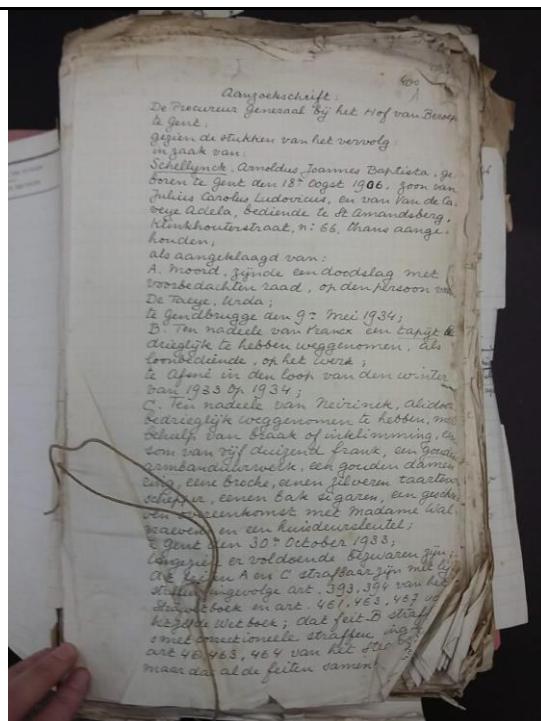 400
1
Aanzoekschrift:
De Procureur Generaal bij het Hof van Beroep
te Gent:
gezien de stukken van het vervolg
in zaak van:
Schellynck, Arnoldus Joannes Baptista, ge-
boren te Gent den 18n Oogst 1906, zoon van
Julius Carolus Ludovicus, en van Van de Ca-
veye Adela, bediende te St Amandsberg,
Klinkhouterstraat, n: 66, thans aange-
houden,
als aangeklaagd van:
A. Moord, zijnde een doodslag met
voorbedachten raad, op den persoon van
De Taeye, Urda;
te Gendbrugge den 9n Mei 1934;
B. Ten nadeele van Franck een tapijt be-
drieglijk te hebben weggenomen, als
loonbediende, op het werk;
te Afsné in den loop van den winter
van 1933 op 1934;
C. Ten nadeele van Neirinck, Alidoor
bedrieglijk weggenomen te hebben, met
behulp van braak of inklimming, een
som van vijf duizend frank, een gouden
armbanduurwerk, een gouden damen-
ring, eene broche, eenen zilveren taarten-
schepper, eenen bak sigaren, een geschre-
ven overeenkomst met Madame Wal
en een huisdeursleutel;
te Gent den 30n October 1933;
Aangezien er voldoende bezwaren zijn;
A en C strafbaar zijn met
straffen ingevolge art. 393, 394 van het
Strafwetboek en art. 461, 463, 467
Wetboek; dat feit B
met correctioneele straffen
art 463, 464 van het
maar dat al de feiten samen